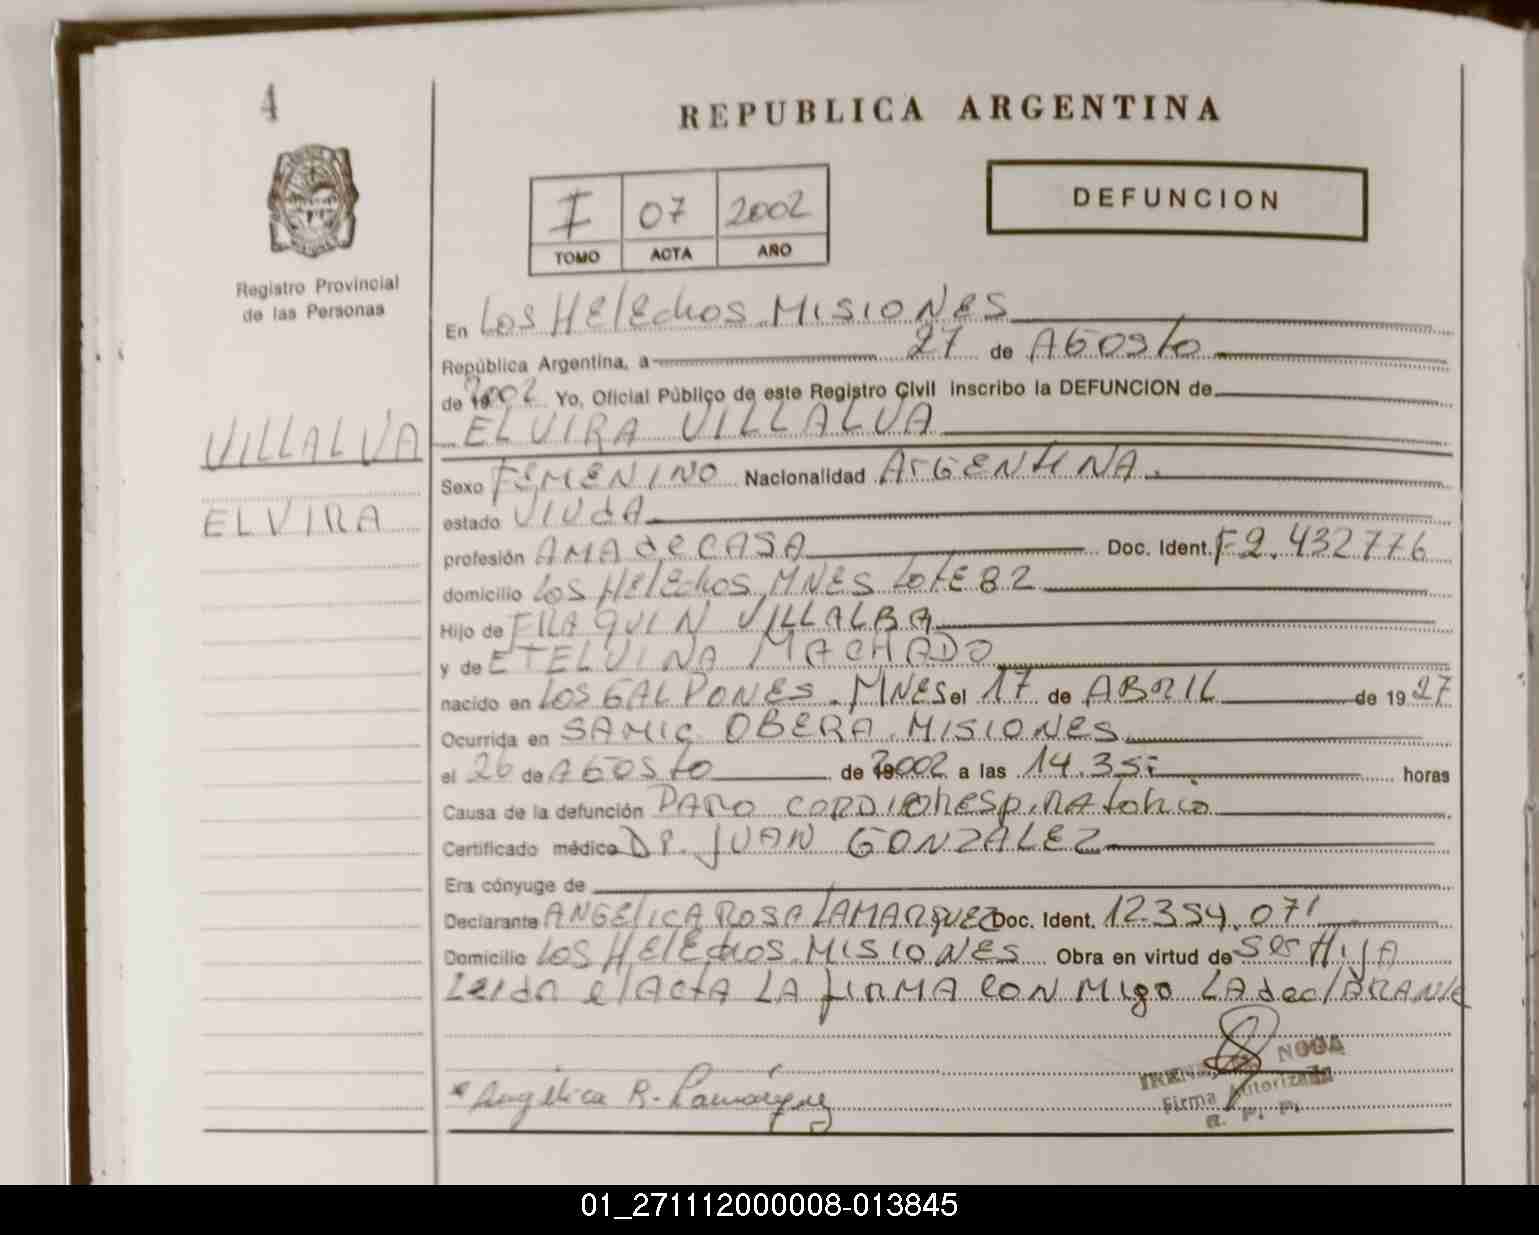 4
REPUBLICA ARGENTINA
I 07 2002
TOMO ACTA AÑO
DEFUNCION
Registro Provincial
de las Personas
VILLALVA
ELVIRA
En Los HElEchos MISIONES
República Argentina, a 27 de AGOSto
de 2002 Yo, Oficial Público de este Registro Civil inscribo la DEFUNCION de
ELVIRA VILLALVA
Sexo FEMENINO Nacionalidad ARGENtINA.
estado VIUdA
profesión AMA de CASA Doc. Ident. F2.432776
domicilio Los HElEchos MNES LotE 82
Hijo de FRAQUIN VILLALBA
y de ETELVINA MACHADO
nacido en LOS GALPONES. MNES el 17 de ABRIL de 1927
Ocurrida en SAMIC OBERA MISIONES
el 26 de AGOSto de 2002 a las 14.35 horas
Causa de la defunción PARO CORDIORESPIRAtoRio
Certificado médico DR. JUAN GONZALEZ
Era cónyuge de
Declarante ANGElICA ROSA LAMARQUEZ Doc. Ident. 12.354.071
Domicilio LOS HElEchos MISIONES Obra en virtud de SER HIJA
LEIdA el ActA LA fIRMA CON MIgo LA declARANtE
Angélica R. Lamarquez
NOGA
Firma Autorizada
R. P. P.
01_271112000008-013845